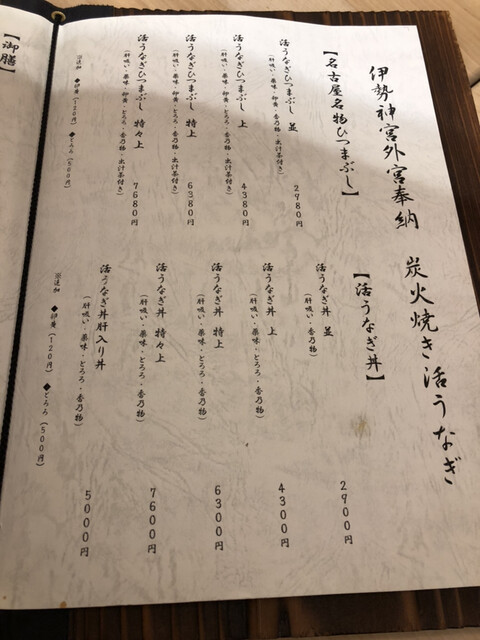 伊勢神宮外宮奉納 炭火焼き活うなぎ
【名古屋名物ひつまぶし】
活うなぎひつまぶし 並 2980円
(肝吸い・薬味・卵黄・香乃物・出汁茶付き)
活うなぎひつまぶし 上 4380円
(肝吸い・薬味・卵黄・とろろ・香乃物・出汁茶付き)
活うなぎひつまぶし 特上 6380円
(肝吸い・薬味・卵黄・とろろ・香乃物・出汁茶付き)
活うなぎひつまぶし 特々上 7680円
(肝吸い・薬味・卵黄・とろろ・香乃物・出汁茶付き)
※追加 ◆卵黄(120円) ◆とろろ(500円)
【活うなぎ丼】
活うなぎ丼 並 2900円
(肝吸い・香乃物)
活うなぎ丼 上 4300円
(肝吸い・薬味・とろろ・香乃物)
活うなぎ丼 特上 6300円
(肝吸い・薬味・とろろ・香乃物)
活うなぎ丼 特々上 7600円
(肝吸い・薬味・とろろ・香乃物)
活うなぎ丼肝入り丼 5000円
(肝吸い・薬味・とろろ・香乃物)
※追加 ◆卵黄(120円) ◆とろろ(500円)
【御膳】